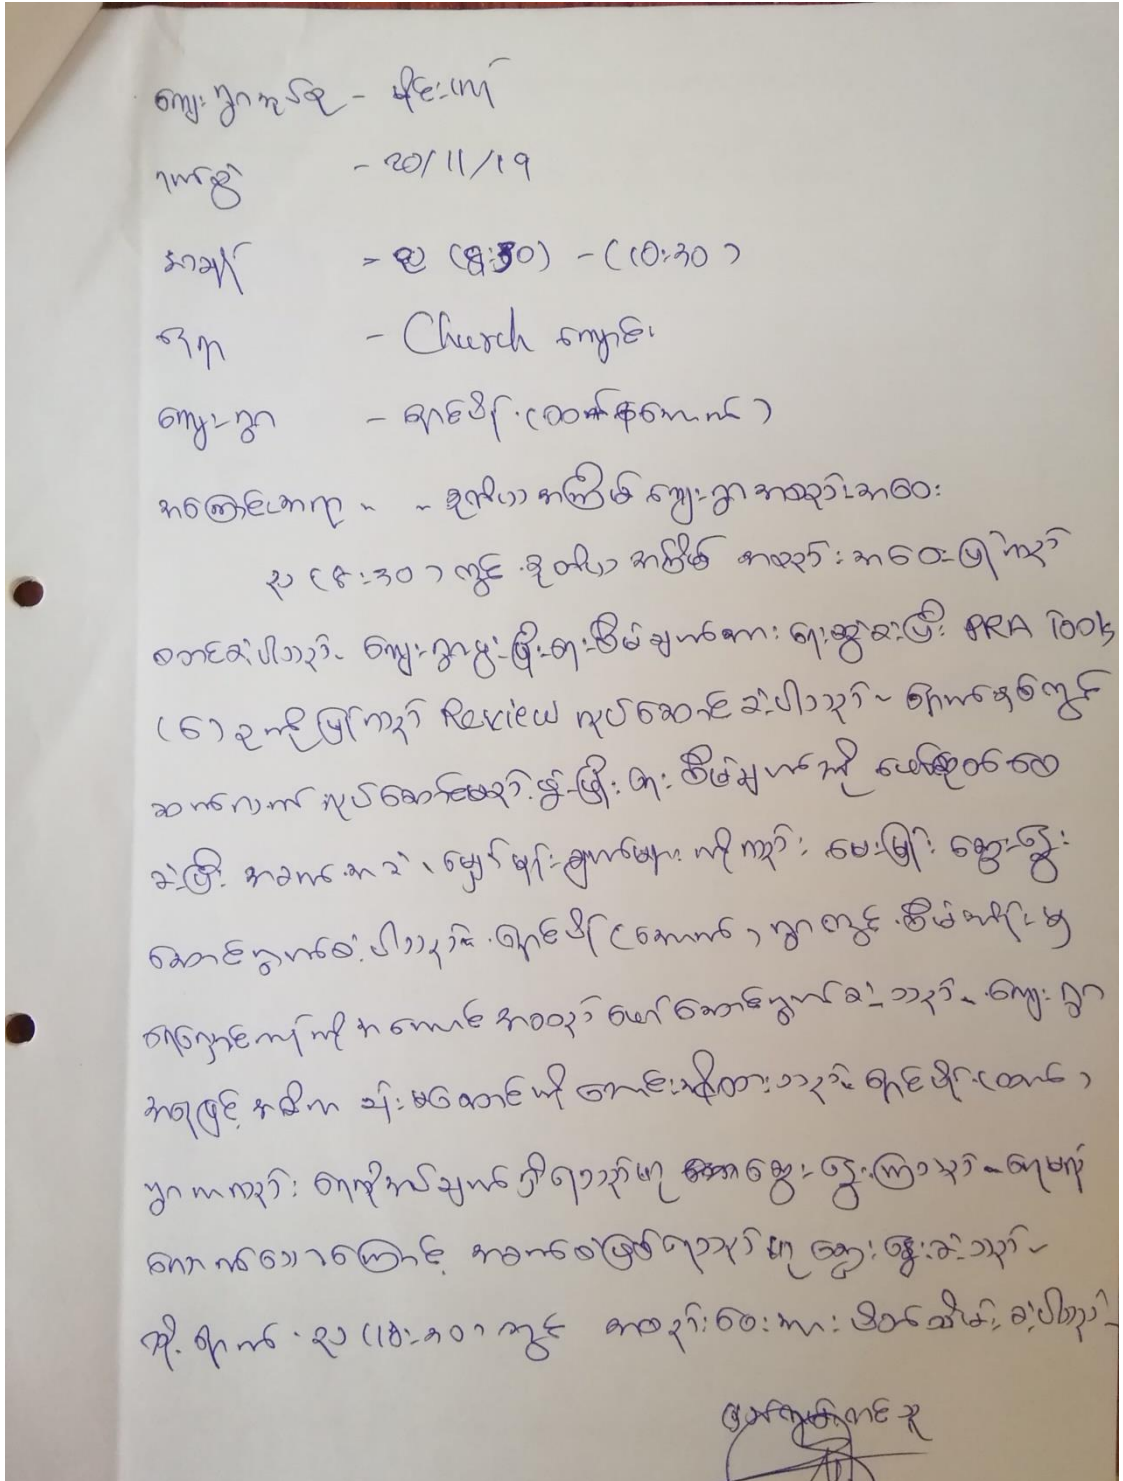 ကျေးရွာအုပ်စု - မိုင်းကော်
ရက်စွဲ - ၂၀/၁၁/၁၉
အချိန် - ည (၈:၃၀) - (၁၀:၃၀)
နေရာ - Church ကျောင်း
ကျေးရွာ - (ထက်နှင့်အောက်)
အကြောင်းအရာ - ဒုတိယအကြိမ် ကျေးရွာအစည်းအဝေး
ည (၈:၃၀) တွင် ဒုတိယအကြိမ် အစည်းအဝေးပြုလုပ်
စတင်ခဲ့ပါသည်။ ကျေးရွာဖွံ့ဖြိုးရေးစီမံချက်အား ရေးဆွဲခဲ့ပြီး PRA Tools
(၆) ခုကို ပြုလုပ် Review လုပ်ဆောင်ခဲ့ပါသည်။ နောက်နှစ်တွင်
ဆက်လက်လုပ်ဆောင်မည့် ဖွံ့ဖြိုးရေးစီမံချက်ကို ဖော်ထုတ်စေ
ခဲ့ပြီး အခက်အခဲ၊ မျှော်မှန်းချက်များကိုလည်း မေးမြန်းဆွေးနွေး
ဆောင်ရွက်ခဲ့ပါသည်။ (အောက်) ရွာတွင် စီမံကိန်းမှ
အကောင်အထည်ဖော်ဆောင်ရွက်ခဲ့သည်။ ကျေးရွာ
အနေဖြင့် အဓိက သုံးမတောင်းဆိုထားသည်။ (ထက်)
ရွာကလည်း ရေလိုအပ်ချက်ရှိနေသည်ဟု ဆွေးနွေးကြသည်။ ရေမလုံ
လောက်သောကြောင့် အခက်ခဲဖြစ်နေသည်ဟု ဆွေးနွေးခဲ့သည်။
ထို့နောက် ည (၁၀:၃၀) တွင် အစည်းဝေးအား ပိတ်သိမ်းခဲ့ပါသည်။